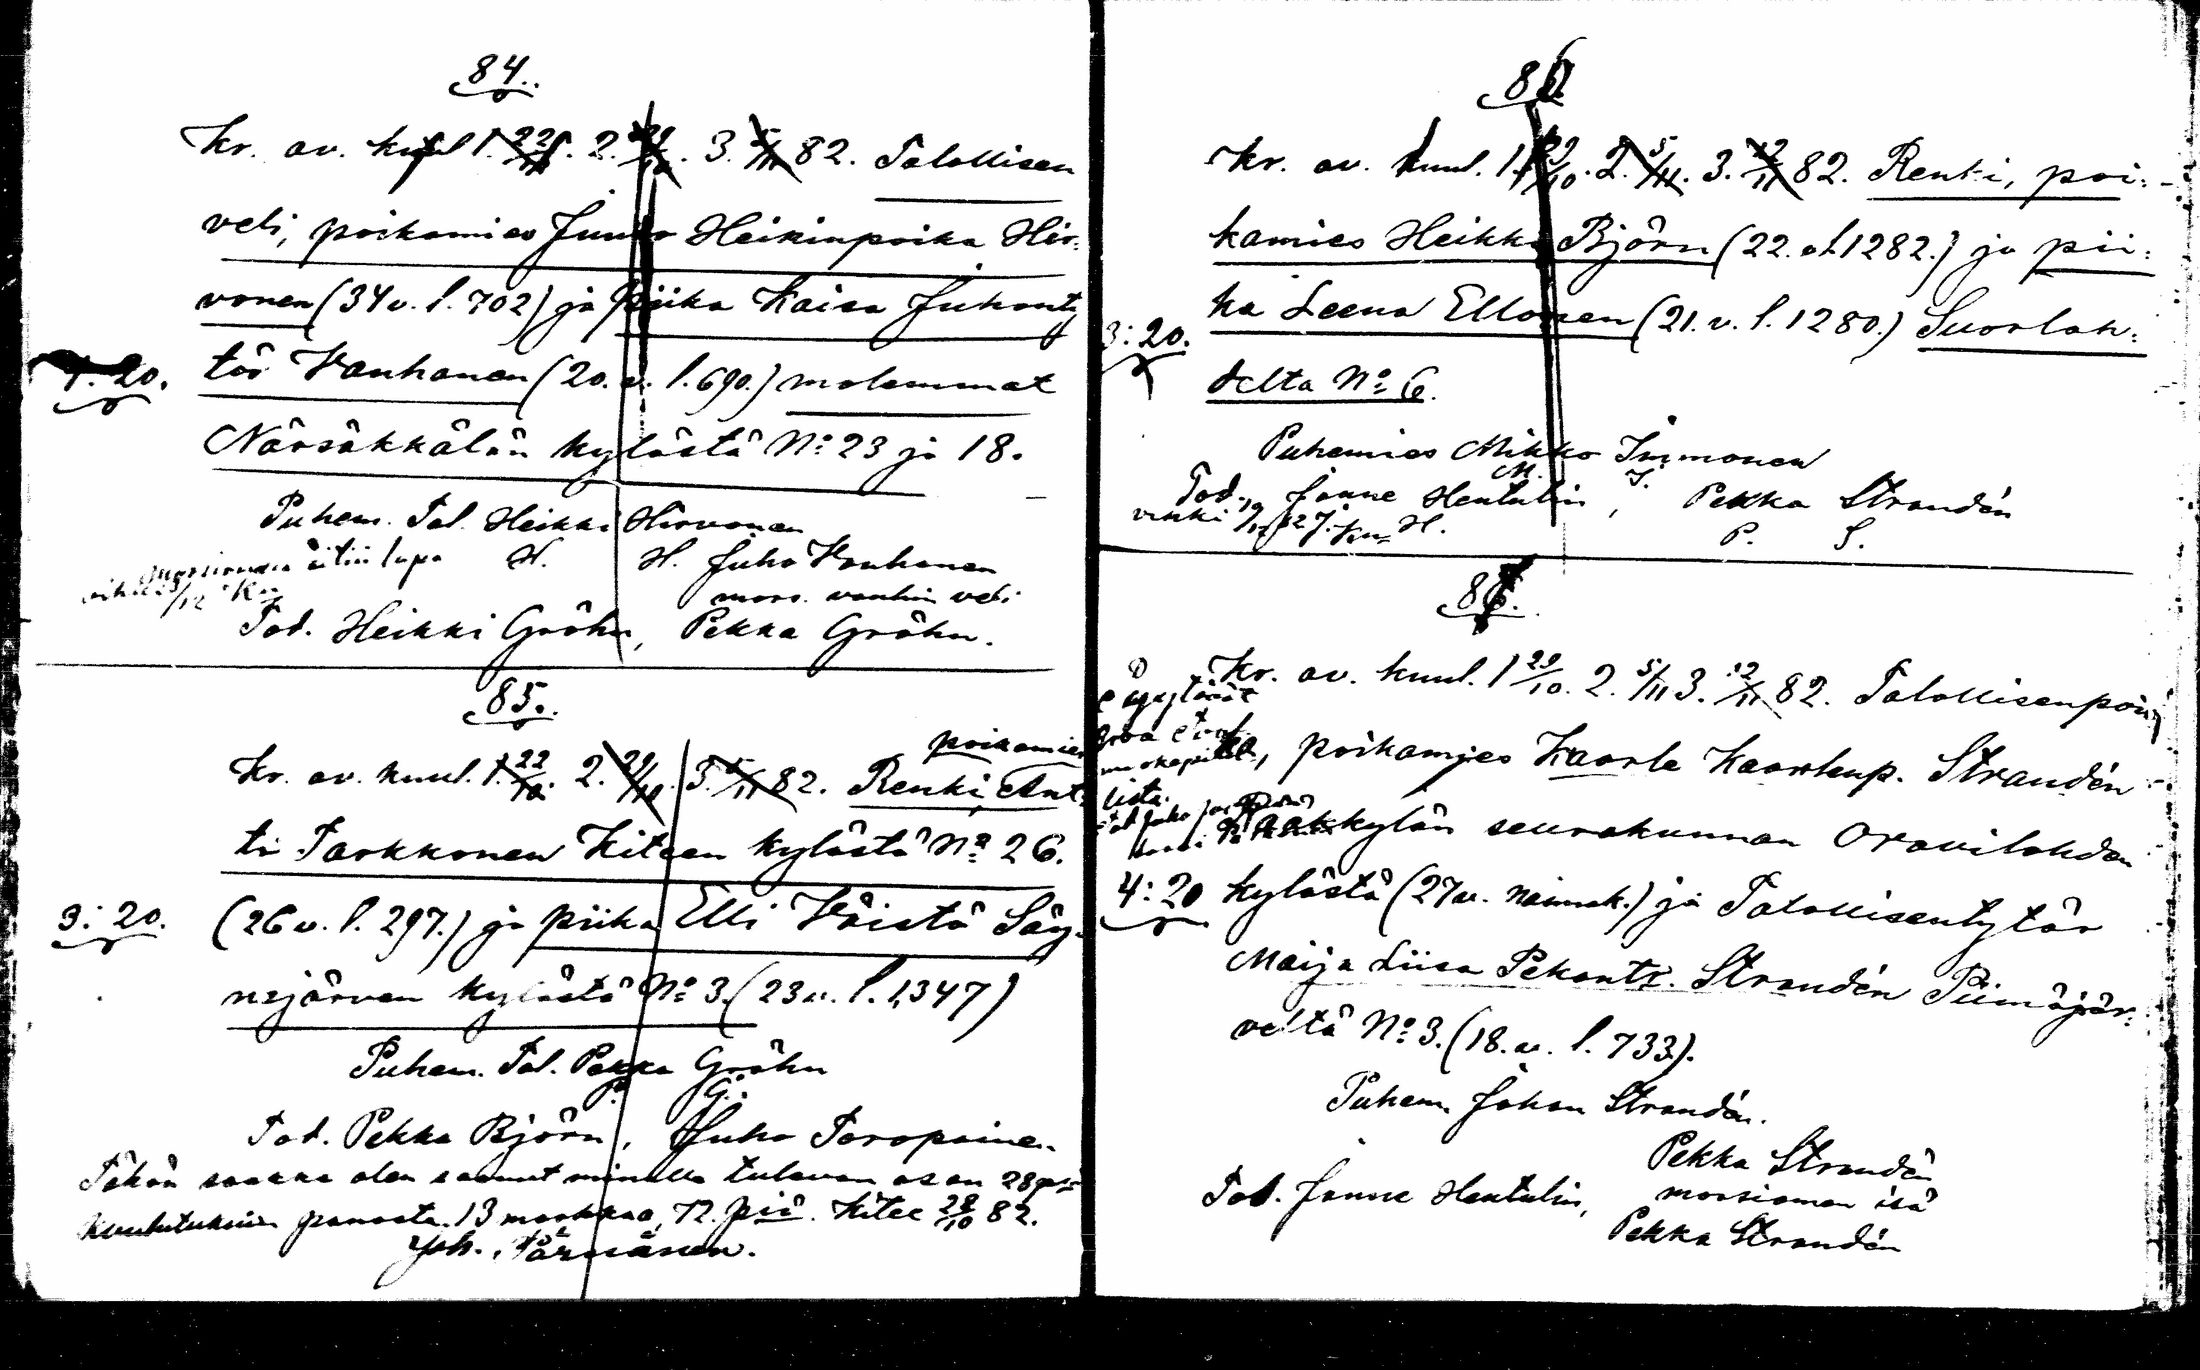 84.
Kr. av. kuul 1. 22/10. 2. 29/10. 3. 5/11 82. Talollisen
veli, poikamies Juho Heikinpoika Hir-
vonen (34 v. l. 702) ja piika Kaisa Juhonty
4: 20.
tär Vanhanen (20. v. l. 690.) molemmat
Närsäkkälän kylästä No 23 ja 18.
Puhem. Tal. Heikki Hirvonen
H. H.
morsiamen äitin lupa
Juho Vanhanen
mors. vanhin veli
Tod. Heikki Gröhn, Pekka Gröhn.
85.
poikamies
Kr. av. kuul. 1. 22/10. 2. 29/10. 3. 5/11 82. Renki, Ant-
ti Tarkkonen Kiteen kylästä No 26.
3: 20.
(26 v. l. 297.) ja piika Elli Väistö Säy-
nejärven kylästä No 3. (23 v. l. 1347)
Puhem. Tal. Pekka Gröhn
P. G.
Tod. Pekka Björn, Juho Toropainen
Tähän saakka olen saanut minulle tulevan osan
kuulutuksien panosta. 13 markkaa, 72 piä. Kitee 28/10 82.
Joh. Pärnänen.
86
Kr. av. kuul. 1. 29/10. 2. 5/11. 3. 12/11 82. Renki, poi-
kamies Heikki Björn (22. v. l. 1282.) ja pii-
3: 20.
ka Leena Ellonen (21. v. l. 1280.) Suorlah-
delta No 6.
Puhemies Mikko Immonen
M. I.
Tod. Janne Hentulin, Pekka Strandén
H. P. S.
Kr. av. kuul. 1 29/10. 2. 5/11 3. 12/11 82. Talollisenpoi-
ka, poikamies Kaarle Kaarlenp. Strandén
Pälkkylän seurakunnan Oravilahden
4: 20
kylästä (27 v. naimat.) ja Talollisentytär
Maija Liisa Pekantr. Strandén Piimäjär-
veltä No 3. (18. v. l. 733).
Puhem. Johan Strandén.
Pekka Strandén
morsiamen isä
Tod. Janne Hentulin,
Pekka Strandén